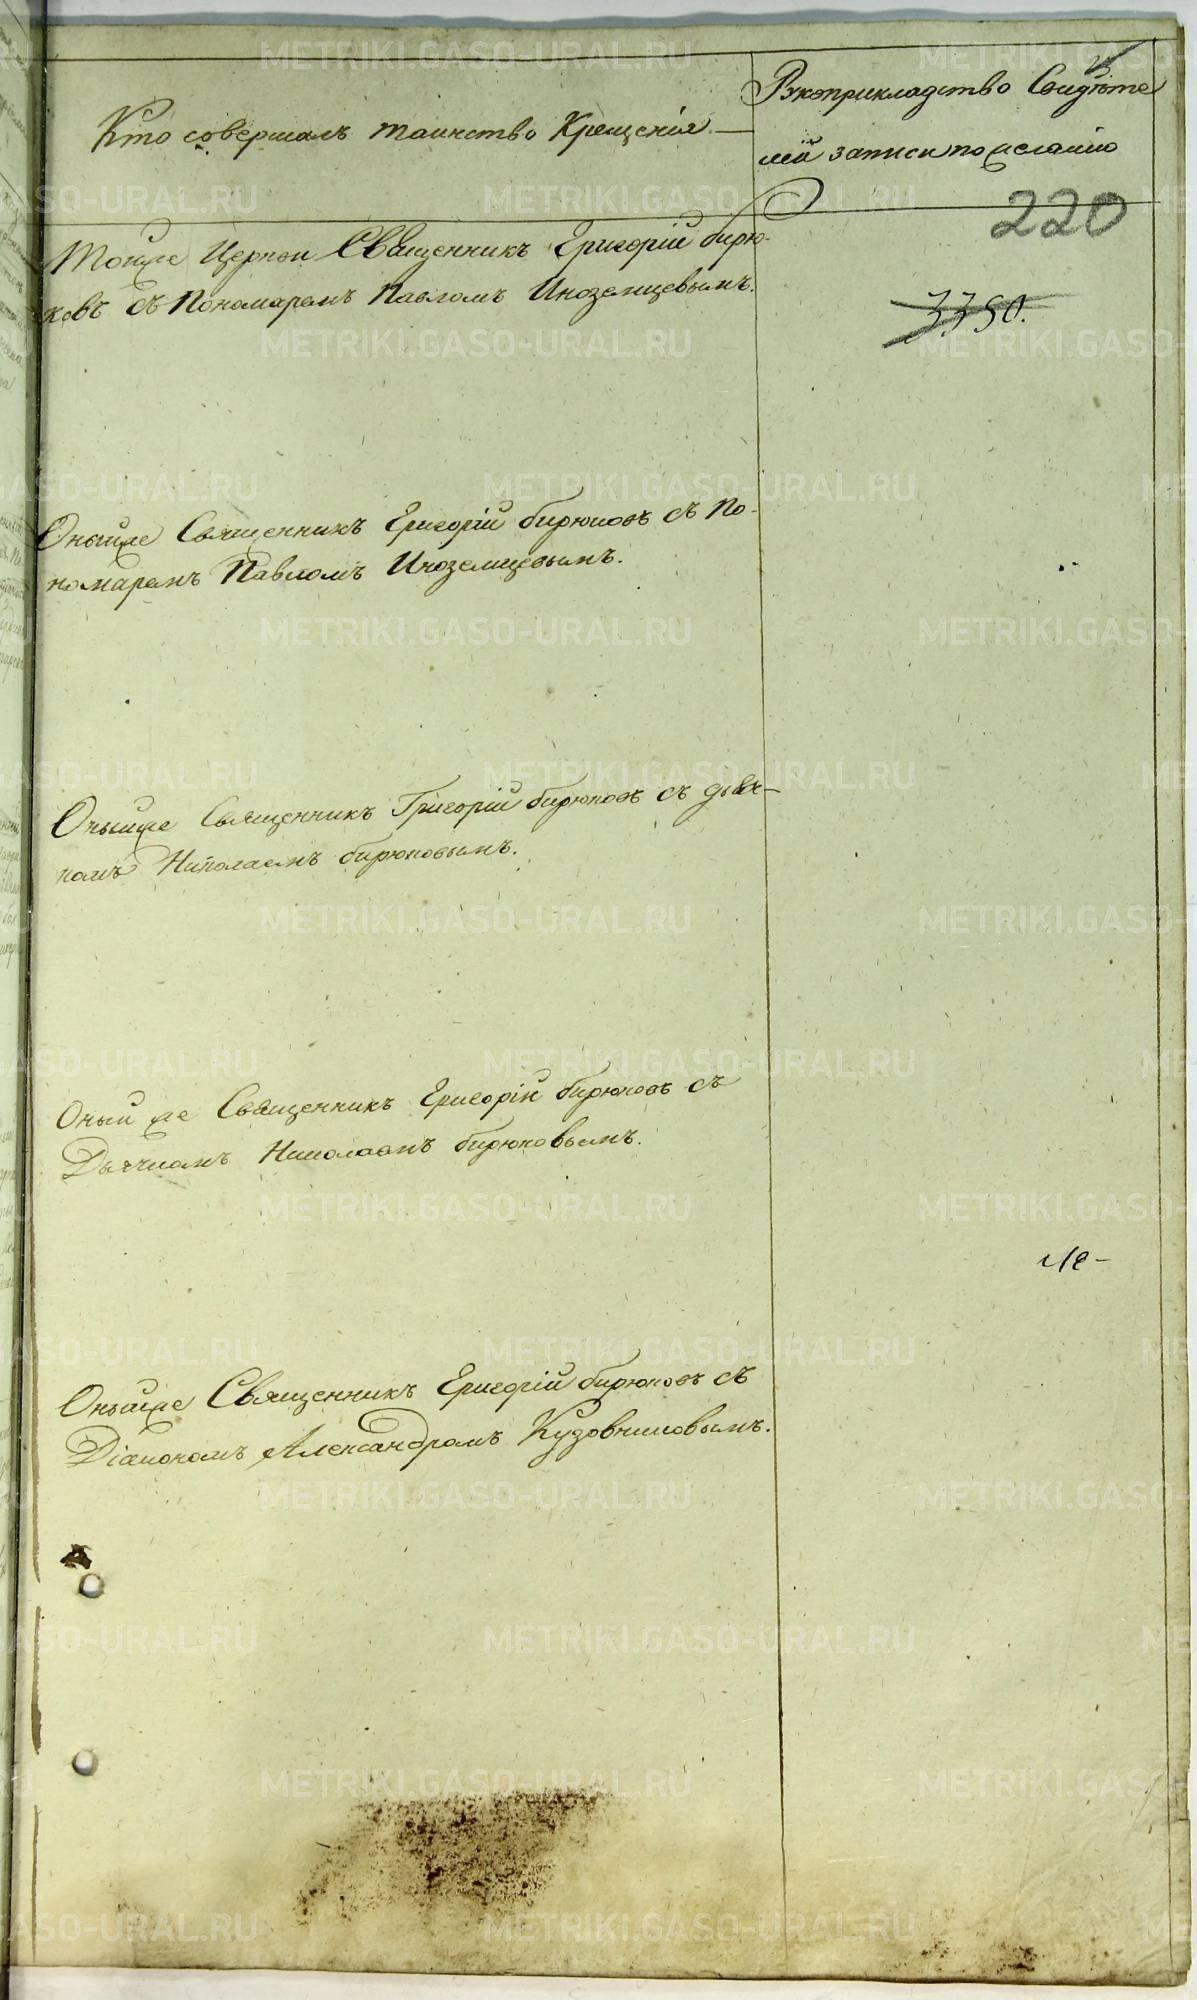 Кто совершалъ таинство Крещенія
Рукоприкладство Свидѣте
лей записи по желанію
220
Тойже Церкви Священникъ Григорій бирю-
ковъ съ Пономаремъ Павломъ Иноземцевымъ.
3350.
Оныйже Священникъ Григорій бирюковъ съ По-
номаремъ Павломъ Иноземцевымъ.
Оныйже Священникъ Григорій бирюковъ съ дьяч-
комъ Николаемъ бирюковымъ.
Оный же Священникъ Григорій бирюковъ съ
Дьячкомъ Николаемъ бирюковымъ.
Оныйже Священникъ Григорій бирюковъ съ
Діакономъ Александромъ Кузовниковымъ.
METRIKI.GASO-URAL.RU